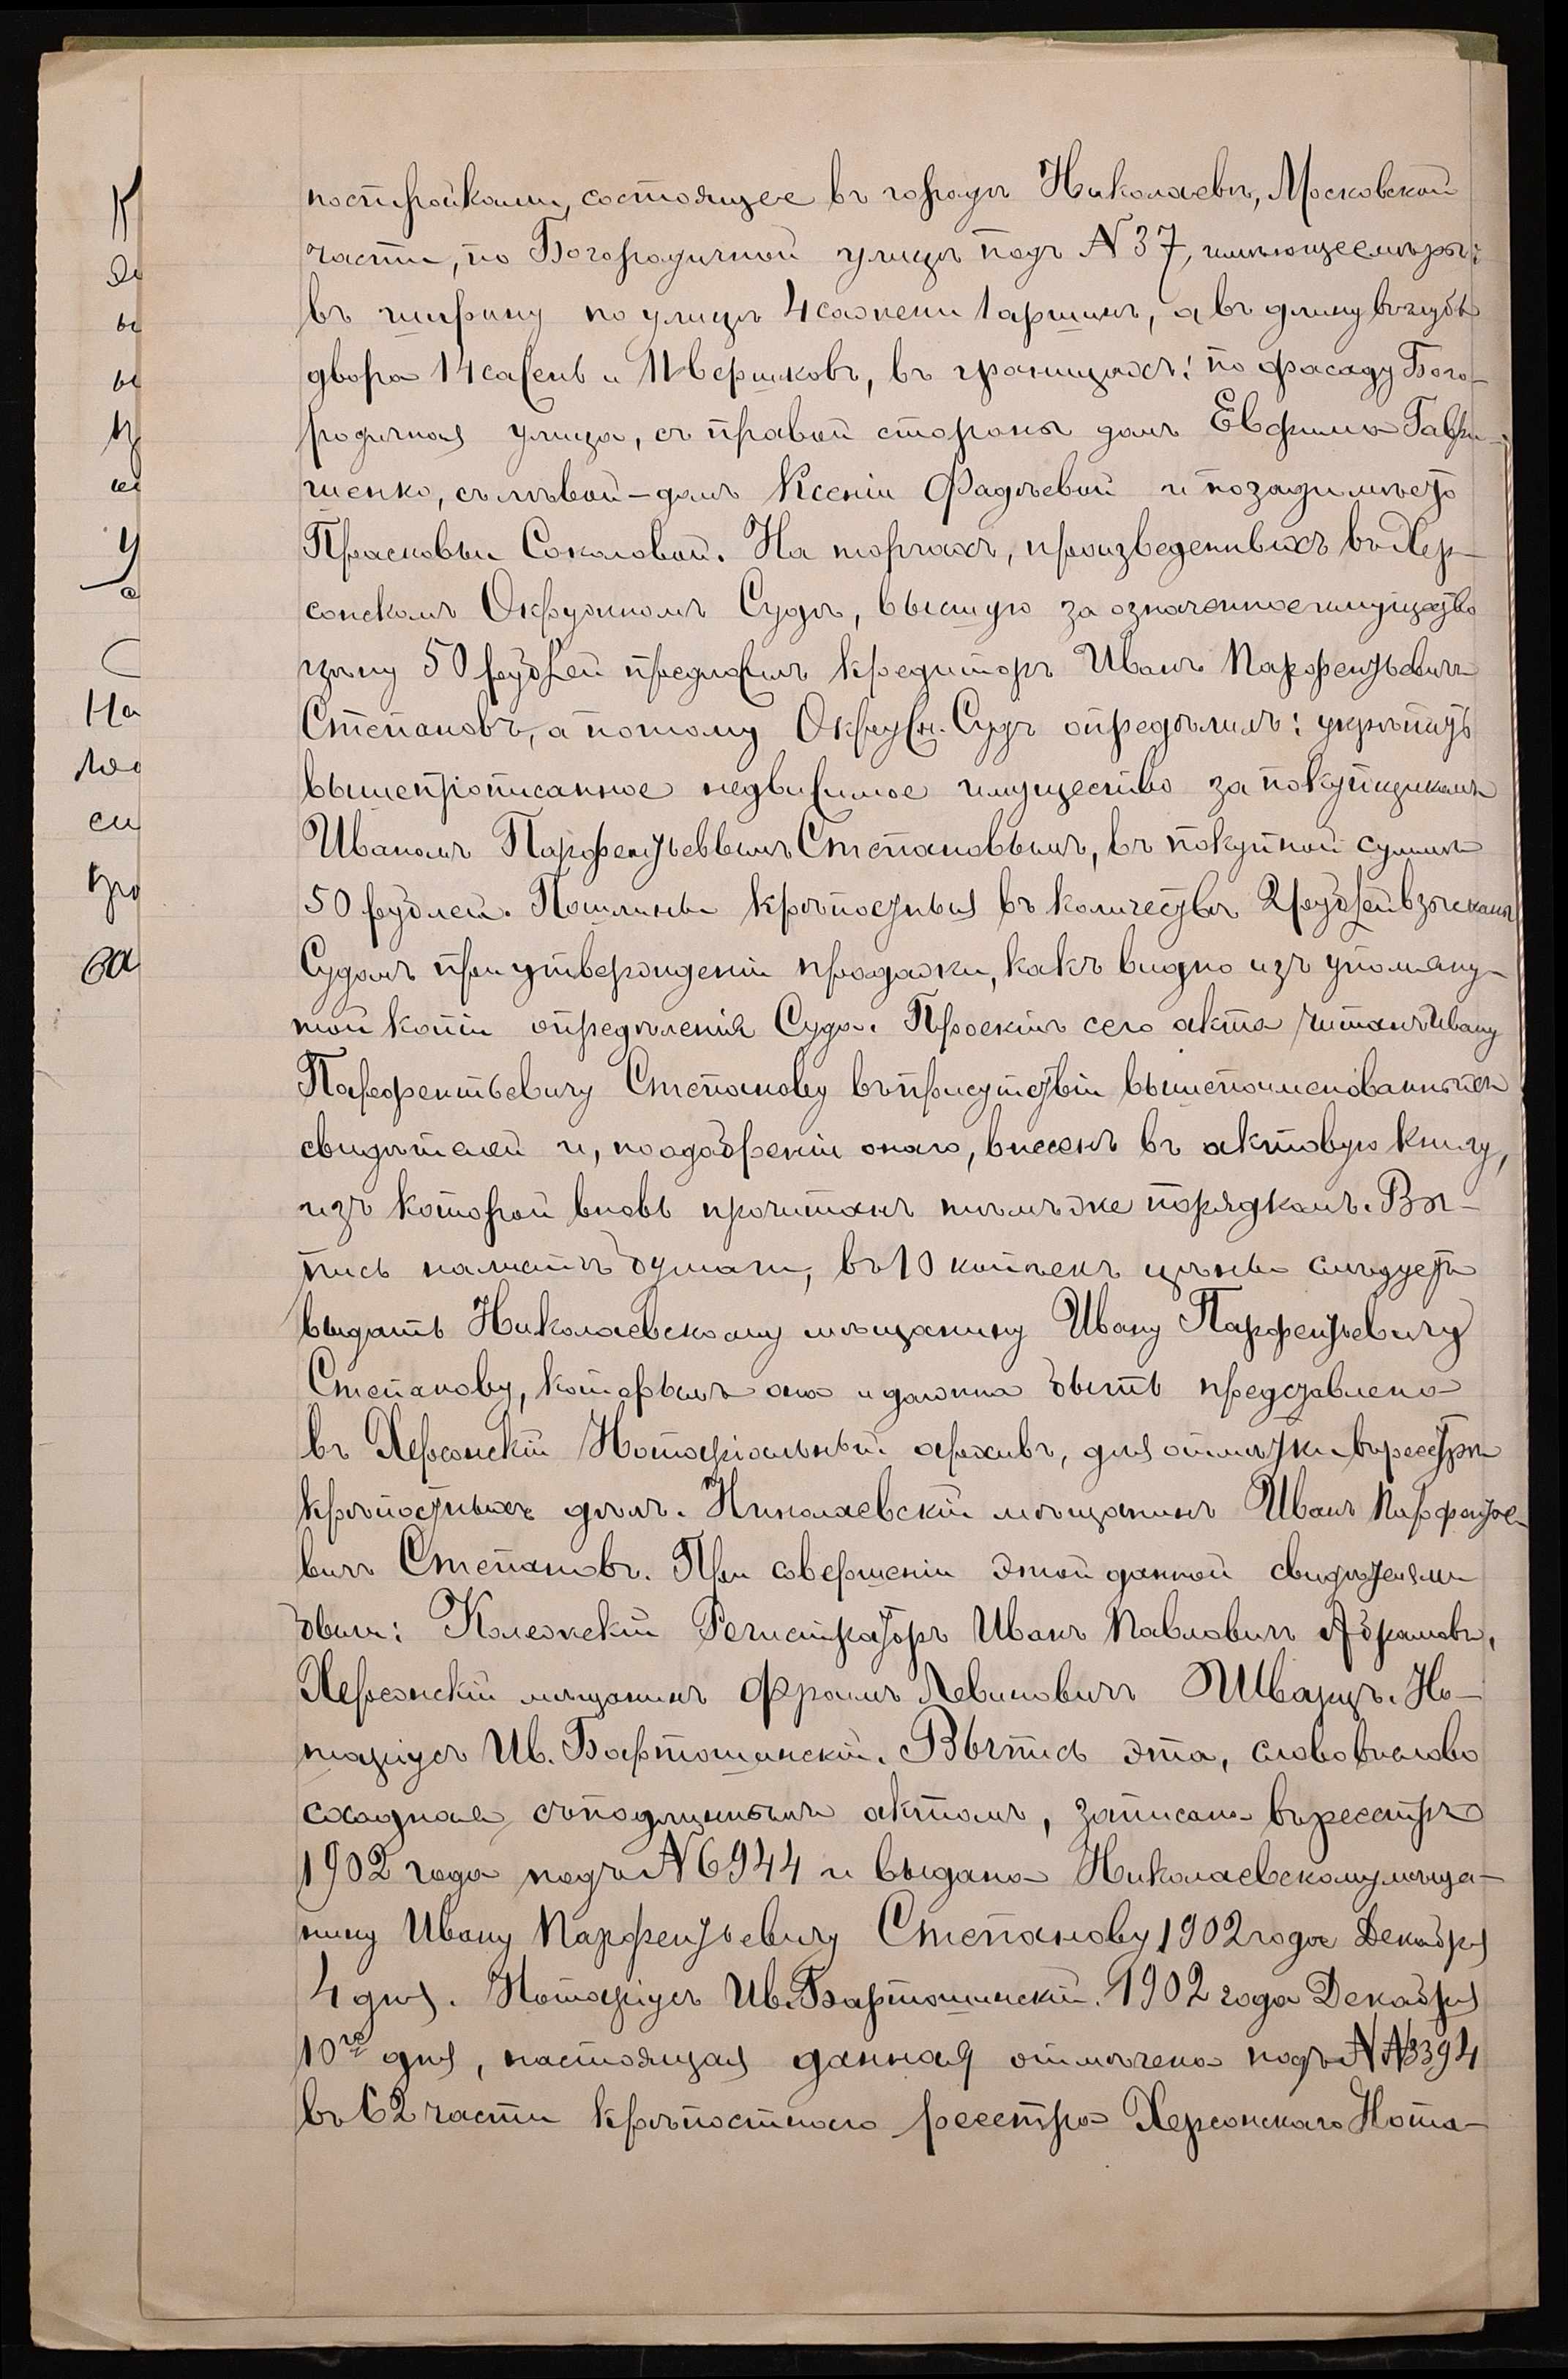 постройками, состоящее въ городѣ Николаевѣ, Московской
части, по Богородичной улицѣ подъ № 37, имѣющее мѣры:
въ ширину по улицѣ 4 сажени 1 аршинъ, а въ длину въ глубь
двора 14 сажень и 11 вершковъ, въ границахъ: по фасаду Бого-
родичная улица, съ правой стороны домъ Евфима Гаври-
шенко, съ лѣвой - домъ Ксеніи Фадѣевой и позади мѣсто
Прасковьи Соколовой. На торгахъ, произведенныхъ въ Хер-
сонскомъ Окружномъ Судѣ, высшую за означенное имущество
цѣну 50 рублей предложилъ кредиторъ Иванъ Парфентьевичъ
Степановъ, а потому Окружн. Судъ опредѣлилъ: укрѣпить
вышепрописанное недвижимое имущество за покупщикомъ
Иваномъ Парфентьевымъ Степановымъ, въ покупной суммѣ
50 рублей. Пошлины крѣпостныя въ количествѣ 2 рублей взысканы
Судомъ при утвержденіи продажи, какъ видно изъ упомяну-
той копіи опредѣленія Суда. Проектъ сего акта читанъ Ивану
Парфентьевичу Степанову въ присутствіи вышепоименованныхъ
свидѣтелей и, по одобреніи онаго, внесенъ въ актовую книгу,
изъ которой вновь прочитанъ тѣмъ же порядкомъ. Вы-
пись на листѣ бумаги, въ 10 копѣекъ цѣны слѣдуетъ
выдать Николаевскому мѣщанину Ивану Парфентьевичу
Степанову, которымъ она и должна быть представлена
въ Херсонскій Нотаріальный архивъ, для отмѣтки въ реестрѣ
крѣпостныхъ дѣлъ. Николаевскій мѣщанинъ Иванъ Парфентье-
вичъ Степановъ. При совершеніи этой данной свидѣтелями
были: Колежскій Регистраторъ Иванъ Павловичъ Абрамовъ,
Херсонскій мѣщанинъ Фроимъ Левиковичъ Шварцъ. Но-
таріусъ Ив. Бартошинскій. Выпись эта, слово въ слово
сходная съ подлиннымъ актомъ, записана въ реестръ
1902 года подъ № 6944 и выдана Николаевскому мѣща-
нину Ивану Парфентьевичу Степанову 1902 года Декабря
4 дня. Нотаріусъ Ив. Бартошинскій. 1902 года Декабря
10го дня, настоящая данная отмѣчена подъ № 3394
въ 62 части крѣпостного реестра Херсонскаго Нота-